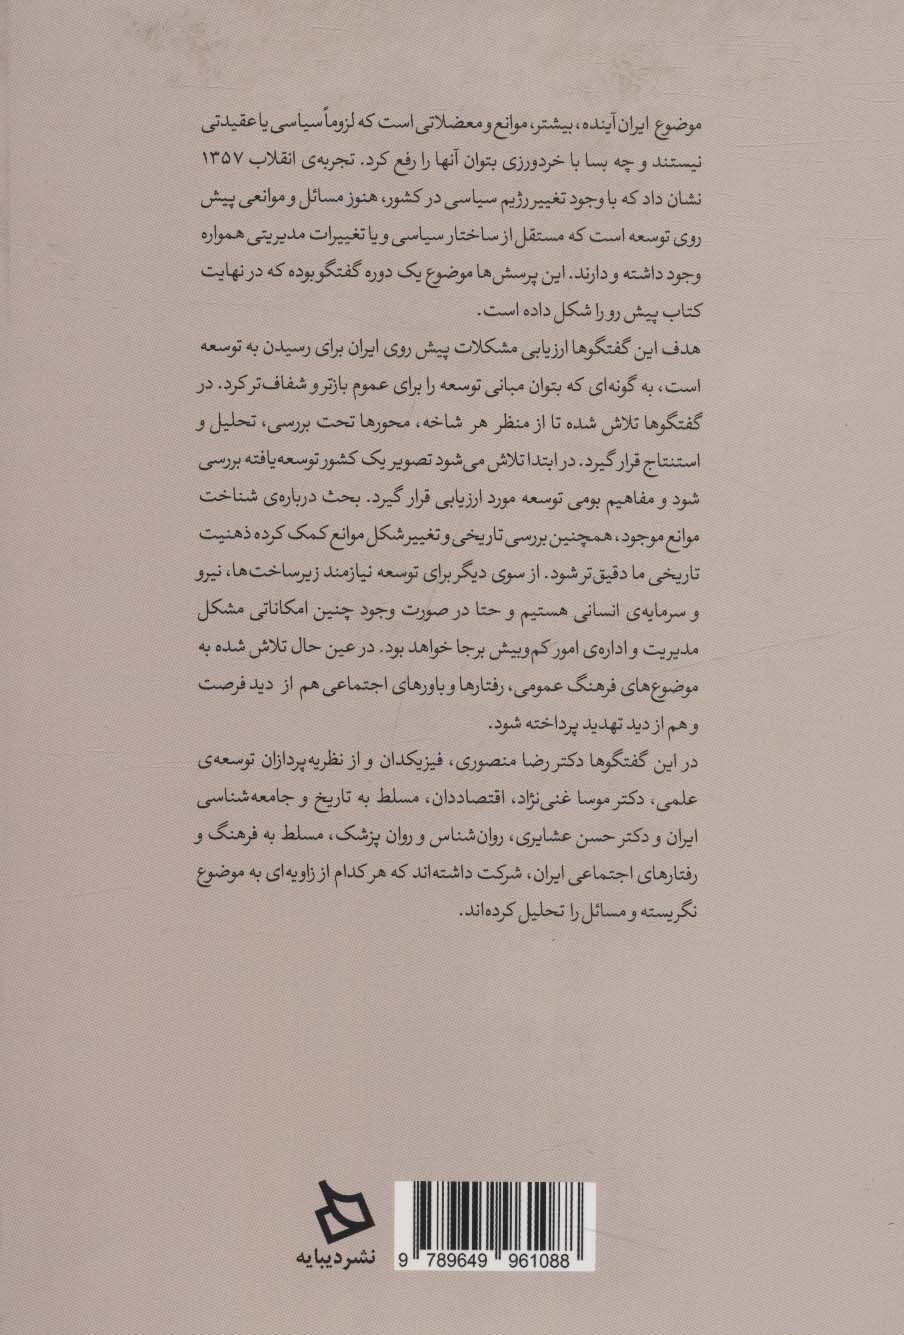 موضوع ایران آینده، بیشتر، موانع و معضلاتی است که لزوماً سیاسی یا عقیدتی
نیستند و چه بسا با خردورزی بتوان آنها را رفع کرد. تجربه‌ی انقلاب ۱۳۵۷
نشان داد که با وجود تغییر رژیم سیاسی در کشور، هنوز مسائل و موانعی پیش
روی توسعه است که مستقل از ساختار سیاسی و یا تغییرات مدیریتی همواره
وجود داشته و دارند. این پرسش‌ها موضوع یک دوره گفتگو بوده که در نهایت
کتاب پیش رو را شکل داده است.
هدف این گفتگوها ارزیابی مشکلات پیش روی ایران برای رسیدن به توسعه
است، به گونه‌ای که بتوان مبانی توسعه را برای عموم بازتر و شفاف‌تر کرد. در
گفتگوها تلاش شده تا از منظر هر شاخه، محورها تحت بررسی، تحلیل و
استنتاج قرار گیرد. در ابتدا تلاش می‌شود تصویر یک کشور توسعه‌یافته بررسی
شود و مفاهیم بومی توسعه مورد ارزیابی قرار گیرد. بحث درباره‌ی شناخت
موانع موجود، همچنین بررسی تاریخی و تغییر شکل موانع کمک کرده ذهنیت
تاریخی ما دقیق‌تر شود. از سوی دیگر برای توسعه نیازمند زیرساخت‌ها، نیرو
و سرمایه‌ی انسانی هستیم و حتا در صورت وجود چنین امکاناتی مشکل
مدیریت و اداره‌ی امور کم‌وبیش برجا خواهد بود. در عین حال تلاش شده به
موضوع‌های فرهنگ عمومی، رفتارها و باورهای اجتماعی هم از دید فرصت
و هم از دید تهدید پرداخته شود.
در این گفتگوها دکتر رضا منصوری، فیزیکدان و از نظریه‌پردازان توسعه‌ی
علمی، دکتر موسا غنی‌نژاد، اقتصاددان، مسلط به تاریخ و جامعه‌شناسی
ایران و دکتر حسن عشایری، روان‌شناس و روان پزشک، مسلط به فرهنگ و
رفتارهای اجتماعی ایران، شرکت داشته‌اند که هر کدام از زاویه‌ای به موضوع
نگریسته و مسائل را تحلیل کرده‌اند.
نشر دیبایه
9 789649 961088